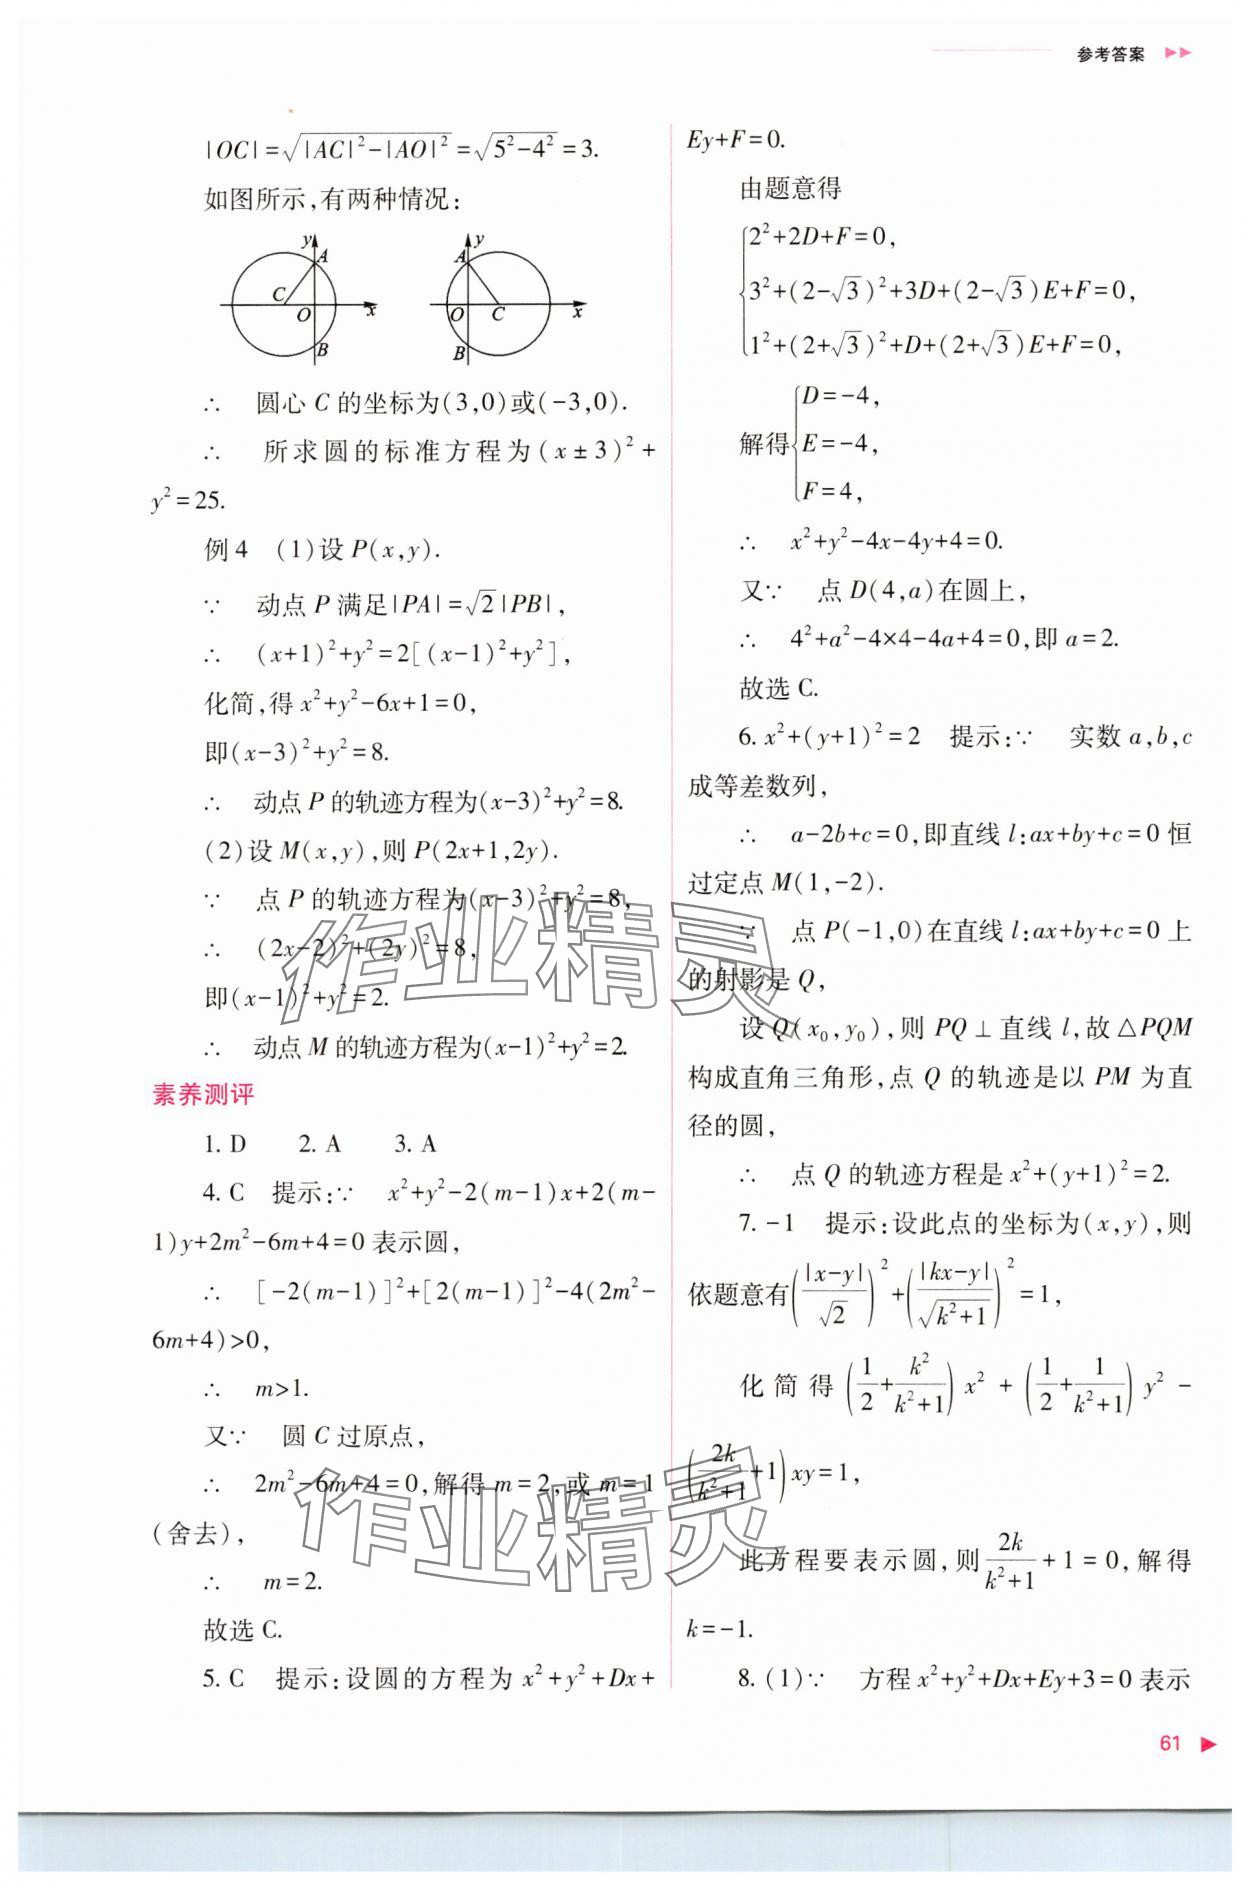 参考答案 ▶▶
|OC|=√(|AC|²-|AO|²)=√(5²-4²)=3.
如图所示,有两种情况:
y A C O x B
y A O C x B
∴ 圆心 C 的坐标为(3,0)或(-3,0).
∴ 所求圆的标准方程为(x±3)²+
y²=25.
例4 (1)设 P(x,y).
∵ 动点 P 满足|PA|=√2|PB|,
∴ (x+1)²+y²=2[(x-1)²+y²],
化简,得 x²+y²-6x+1=0,
即(x-3)²+y²=8.
∴ 动点 P 的轨迹方程为(x-3)²+y²=8.
(2)设 M(x,y),则 P(2x+1,2y).
∵ 点 P 的轨迹方程为(x-3)²+y²=8,
∴ (2x-2)²+(2y)²=8,
即(x-1)²+y²=2.
∴ 动点 M 的轨迹方程为(x-1)²+y²=2.
素养测评
1. D 2. A 3. A
4. C 提示:∵ x²+y²-2(m-1)x+2(m-
1)y+2m²-6m+4=0 表示圆,
∴ [-2(m-1)]²+[2(m-1)]²-4(2m²-
6m+4)>0,
∴ m>1.
又∵ 圆 C 过原点,
∴ 2m²-6m+4=0,解得 m=2,或 m=1
(舍去),
∴ m=2.
故选 C.
5. C 提示:设圆的方程为 x²+y²+Dx+
Ey+F=0.
由题意得
2²+2D+F=0,
3²+(2-√3)²+3D+(2-√3)E+F=0,
1²+(2+√3)²+D+(2+√3)E+F=0,
解得 D=-4,
E=-4,
F=4,
∴ x²+y²-4x-4y+4=0.
又∵ 点 D(4,a)在圆上,
∴ 4²+a²-4×4-4a+4=0,即 a=2.
故选 C.
6. x²+(y+1)²=2 提示:∵ 实数 a,b,c
成等差数列,
∴ a-2b+c=0,即直线 l:ax+by+c=0 恒
过定点 M(1,-2).
∵ 点 P(-1,0)在直线 l:ax+by+c=0 上
的射影是 Q,
设 Q(x₀,y₀),则 PQ⊥直线 l,故△PQM
构成直角三角形,点 Q 的轨迹是以 PM 为直
径的圆,
∴ 点 Q 的轨迹方程是 x²+(y+1)²=2.
7. -1 提示:设此点的坐标为(x,y),则
依题意有(|x-y|/√2)²+(|kx-y|/√(k²+1))²=1,
化简得(1/2+k²/(k²+1))x²+(1/2+1/(k²+1))y²-
(2k/(k²+1)+1)xy=1,
此方程要表示圆,则2k/(k²+1)+1=0,解得
k=-1.
8. (1)∵ 方程 x²+y²+Dx+Ey+3=0 表示
61 ▶
作业精灵
作业精灵